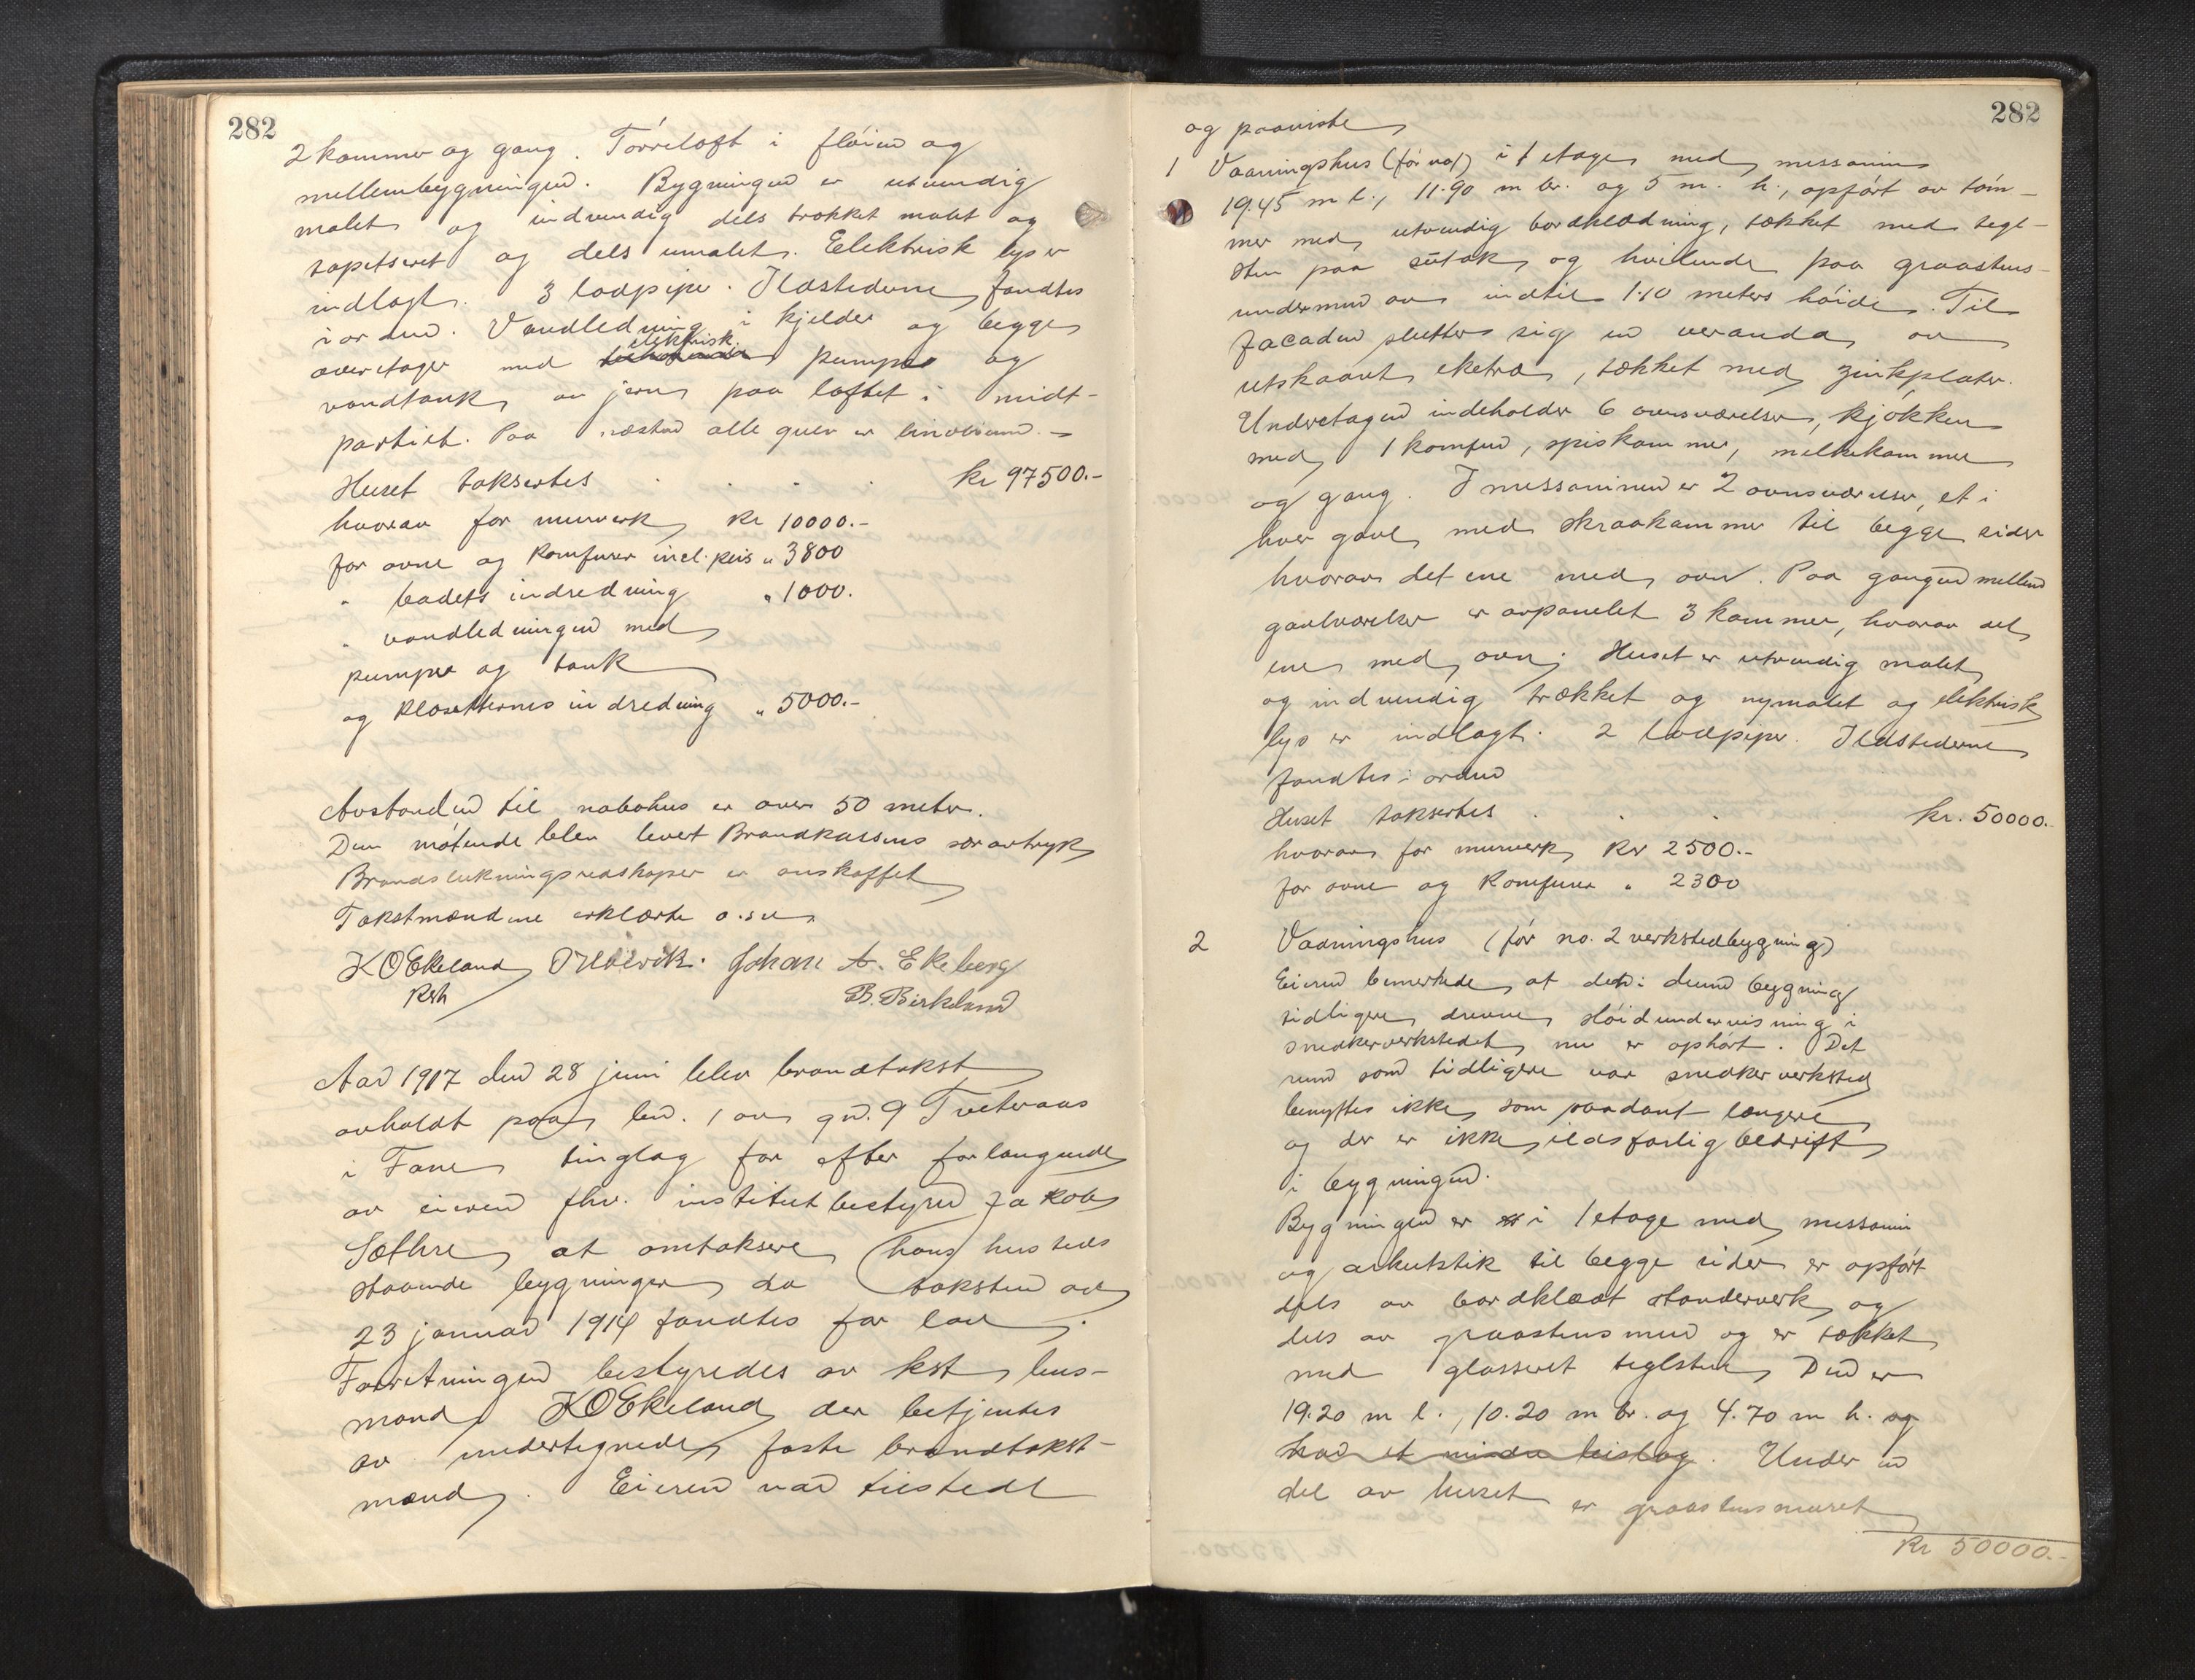 282
2 kammer og gang. Tørreloft i fløien og
mellembygningen. Bygningen er utvendig
malet og indvendig dels trækket malet og
tapetseret og dels umalet. Elektrisk lys er
indlagt. 3 lodpiper. Ildstederne fandtes
i orden. Vandledning i kjelder og begge
overetager med elektrisk pumpe og
vandtank av jern paa loftet i midt-
partiet. Paa næsten alle gulv er linoleum. –
Huset taksertes . . . . kr 97500.-
hvorav for murverk kr 10000.-
for ovne og komfurer incl. peis " 3800
" badets indredning " 1000.
" vandledningen med
pumpe og tank
og klosetternes indredning " 5000.-
Avstanden til nabohus er over 50 meter.
Den møtende blev levert Brandkassens særavtryk
Brandslukningsredskaper er anskaffet
Takstmændene erklærte o.s.v.
K O Ekeland Johan A. Ekeberg
B. Birkeland
Aar 1917 den 28 juni blev brandtakst
avholdt paa bno. 1 av gno. 9 Tveteraas
i Fane tinglag for efter forlangende
av eieren fhv. institutbestyrer Jakob
Sæthre at omtaksere hans husteds
staaende bygninger, da taksten av
23 januar 1914 fandtes for lav.
Forretningen bestyredes av kst lens-
mand K O Ekeland der betjentes
av undertegnede faste brandtakst-
mænd. Eieren var tilstede
282
og paaviste
1 Vaaningshus (før no 1) i 1 etage med messanin
19.45 m l., 11.90 m br. og 5 m. h., opført av tøm-
mer med utvendig bordklædning, tækket med tegl-
sten paa sutak og hvilende paa graastens-
undermur av indtil 1.10 meters høide. Til
facaden slutter sig en veranda av
utskaaret eketræ, tækket med zinkplater.
Underetagen indeholder 6 ovnsværelser, kjøkken
med 1 komfur, spiskammer, melkekammer
og gang. I messaninen er 2 ovnsværelser, et i
hver gavl med skraakammer til begge sider
hvorav det ene med ovn. Paa gangen mellem
gavlværelser er avpanelet 3 kammer, hvorav det
ene med ovn. Huset er utvendig malet
og indvendig trækket og nymalet og elektrisk
lys er indlagt. 2 lodpiper. Ildstederne
fandtes i orden
Huset taksertes . . . kr. 50000.
hvorav for murverk kr 2500.-
for ovne og komfurer " 2300
2 Vaaningshus (før no. 2 verkstedbygning)
Eieren bemerkede at den i denne bygning
tidligere drevne sløidundervisning i
snedkerverkstedet nu er ophørt. Det
rum som tidligere var snedkerverksted
benyttes ikke som saadant længere
og der er ikke ildsfarlig bedrift
i bygningen.
Bygningen er i 1 etage med messanin
og arkutstik til begge sider er opført
dels av bordklædt standerverk og
dels av graastensmur og er tækket
med glasseret teglsten. Den er
19.20 m l., 10.20 m br. og 4.70 m h. og
har et mindre bislag. Under en
del av huset er graastensmuret
Kr 50000.-